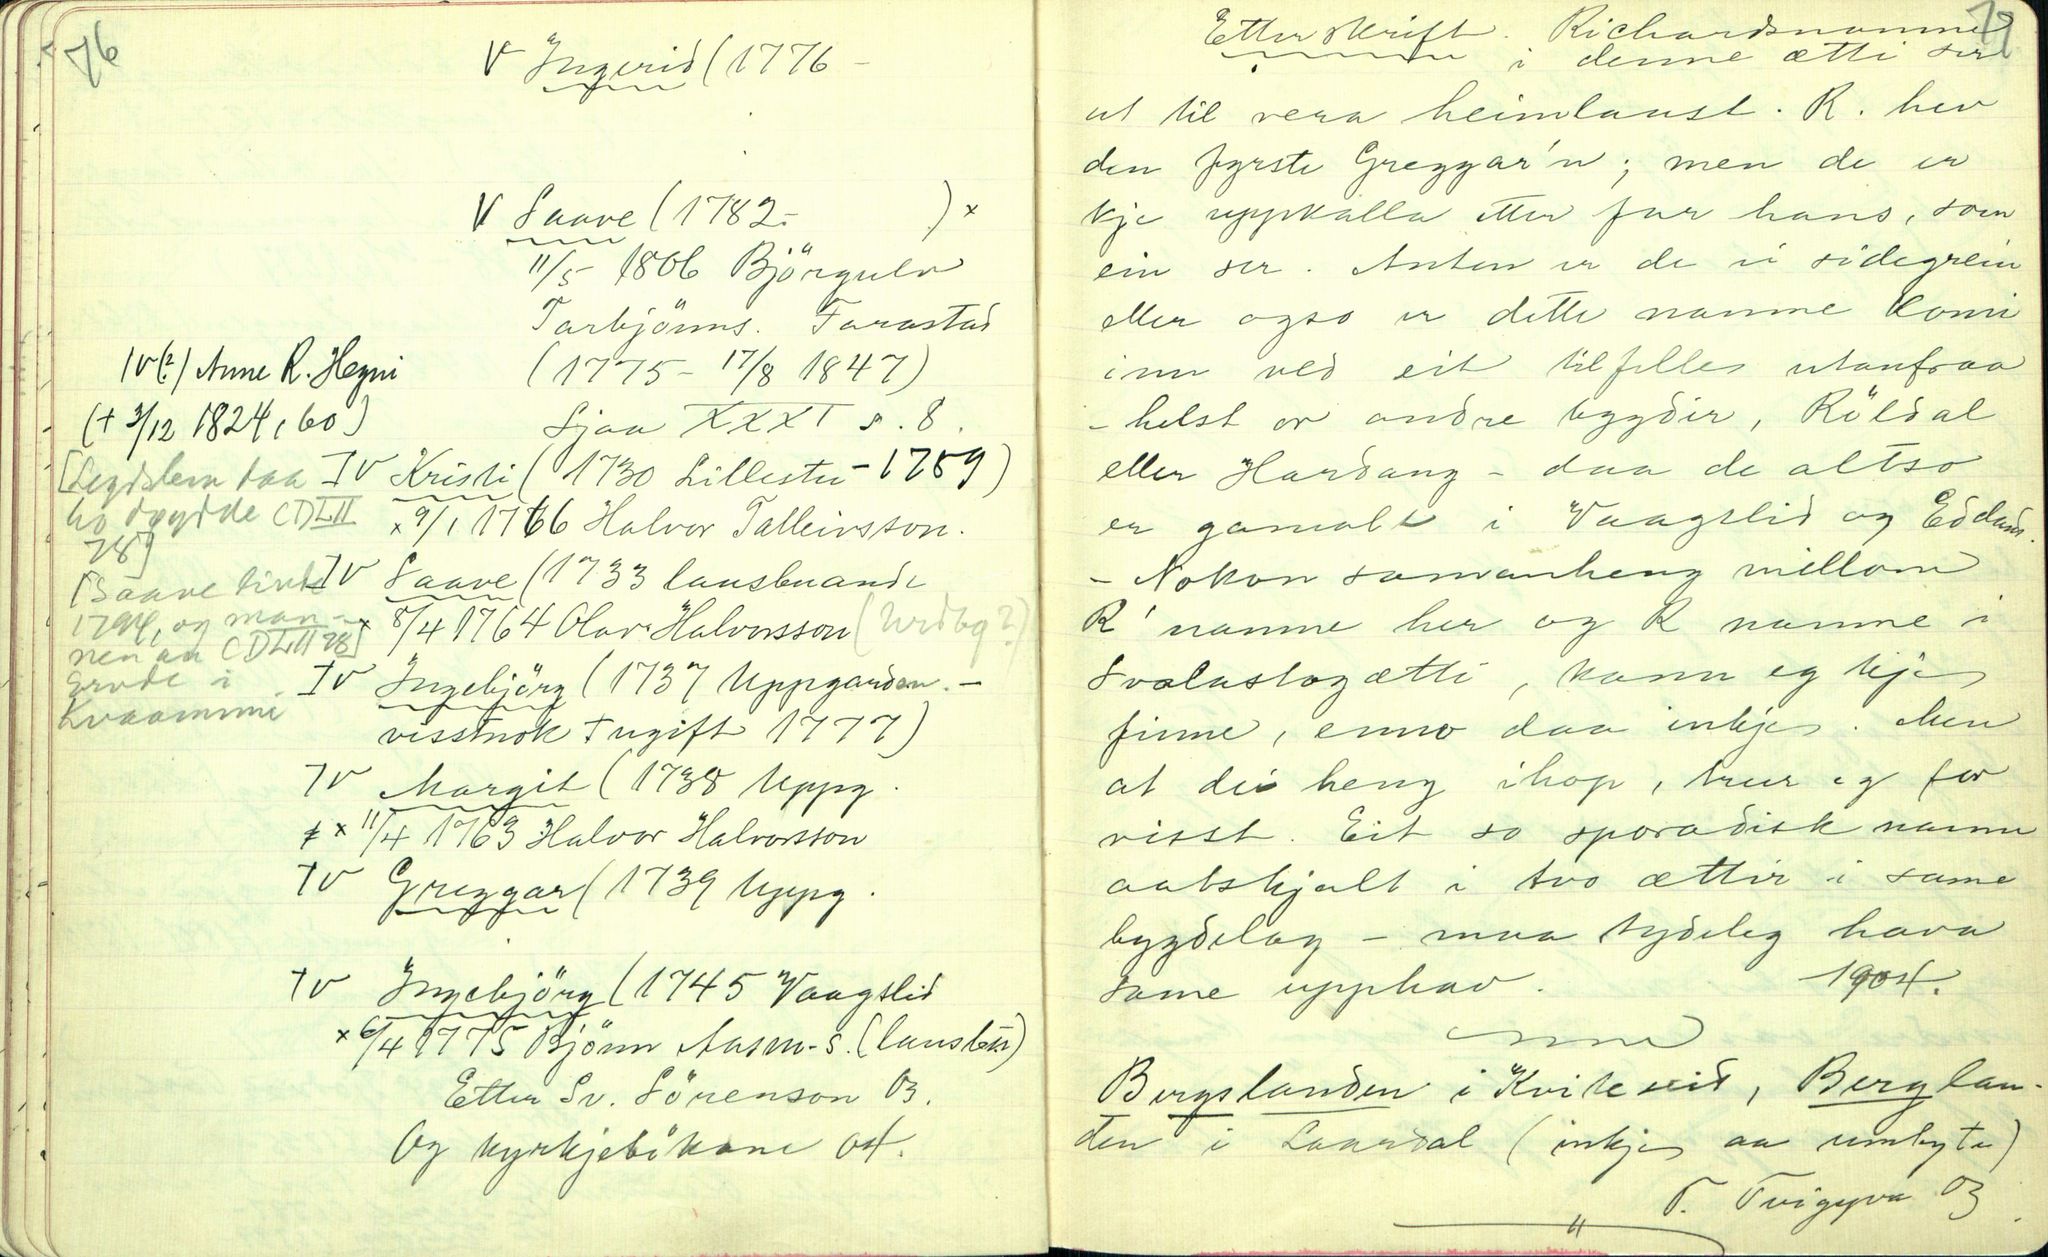 76
V Ingerid (1776 –
V Saave (1782 – ) x
11/5 1806 Björgulv
Tarbjönns. Tarastad
(1775 – 17/8 1847)
Sjaa XXXI s. 8.
IV(?) Anne R. Hegni
(+ 3/12 1824, 60)
IV Kristi (1730 Lillestu – 1789)
x 9/1 1766 Halvor Talleivsson.
[Legdslem daa
ho döydde CDLII
78]
IV Saave (1733 lausbuande
x 8/4 1764 Olav Halvorsson (Urdbø?)
[Saave livde
1794, og man-
nen aa CDLII 78]
Ervde i
Kvaammi
IV Ingebjörg (1737 Uppgarden. –
visstnok + ugift 1777)
IV Margit (1738 Uppg.
x 11/4 1763 Halvor Halvorsson
IV Greggar (1739 Uppg.
IV Ingebjörg (1745 Vaagslid
x 6/4 1775 Björn Aasm-s. (lausb.)
Etter Sv. Sörenson 03.
Og kyrkjebökane 04.
77
Etterskrift. Richardsnamne
i denne ætti ser
ut til vera heimlaust. R. hev
den fyrste Greggar'n; men de er
kje uppkalla etter far hans, som
ein ser. Anten er de i sidegrein
eller ogso er dette namne komi
inn ved eit tilfelle utanfraa
– helst or andre bygdir, Röldal
eller Hardang – daa de altso
er gamalt i Vaagslid og Eddand.
– Nokon samanheng millom
R'namne her og R namne i
Svalastogætti, kann eg kje
finne, enno daa inkje. Men
at dei heng ihop, trur eg for
visst. Eit so sporadisk namn
aatskjalt i tvo ættir i same
bygdelag – maa tydeleg hava
same upphav. 1904.
Bergslanden i Kviteseid, Berglan-
den i Laardal (inkje aa umbyte)
T. Tvigyva 03